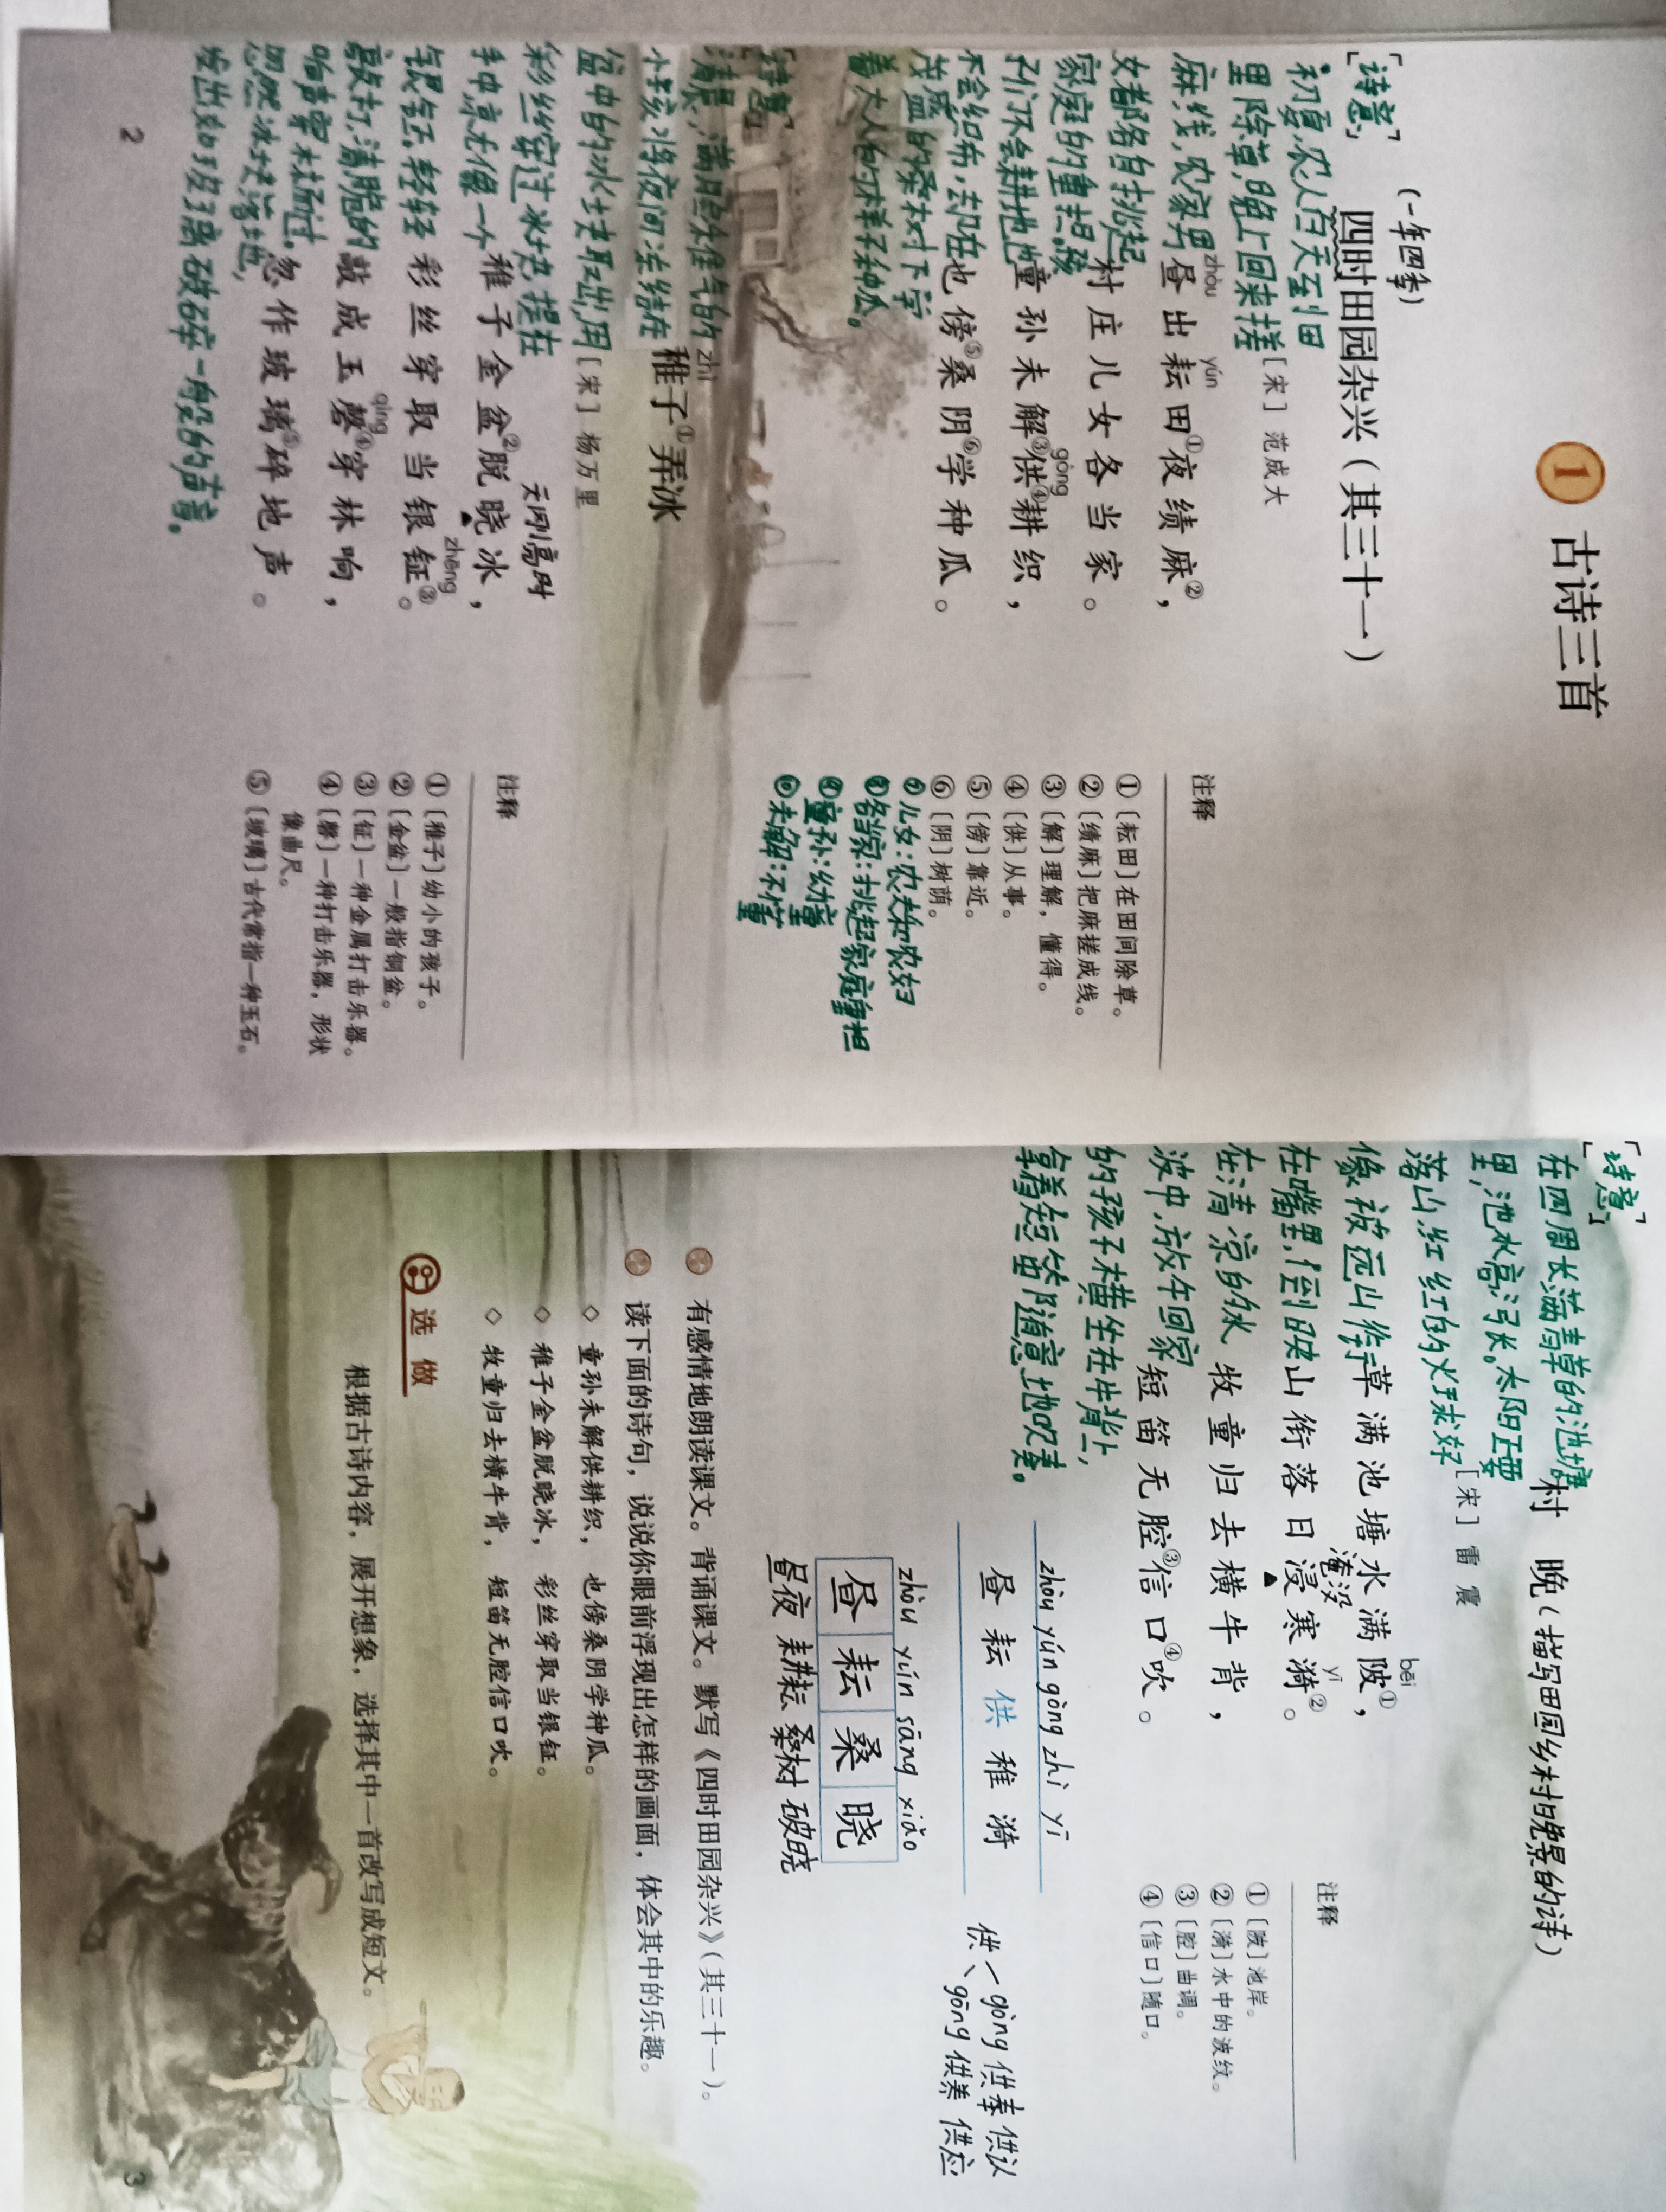 1 古诗三首
(一年四季)
四时田园杂兴（其三十一）
［宋］范成大
zhòu yún
昼出耘田①夜绩麻②，
村庄儿女各当家。
gòng
童孙未解③供④耕织，
也傍⑤桑阴⑥学种瓜。
「诗意」
初夏，农人白天到田
里除草，晚上回来搓
麻线，农家男
女都各自挑起
家庭的重担。孩
子们不会耕地也
不会织布，却在
茂盛的桑树下学
着大人的样子种瓜。
注释
①〔耘田〕在田间除草。
②〔绩麻〕把麻搓成线。
③〔解〕理解，懂得。
④〔供〕从事。
⑤〔傍〕靠近。
⑥〔阴〕树荫。
⑦儿女：农夫和农妇
⑧各当家：挑起家庭重担
⑨童孙：幼童
⑩未解：不懂
zhì
稚子①弄冰
［宋］杨万里
天刚亮时
稚子金盆②脱晓冰，
zhēng
彩丝穿取当银钲③。
qìng
敲成玉磬④穿林响，
忽作玻璃⑤碎地声。
「诗意」
清晨，满脸稚气的
小孩，将夜间冻结在
盆中的冰块取出，用
彩丝穿过冰块，提在
手中，京尤像一个
银钲，轻轻
敲打，清脆的
响声穿林而过。
忽然冰块落地，
发出如玻璃破碎一般的声音。
注释
①〔稚子〕幼小的孩子。
②〔金盆〕一般指铜盆。
③〔钲〕一种金属打击乐器。
④〔磬〕一种打击乐器，形状
像曲尺。
⑤〔玻璃〕古代常指一种玉石。
2
村 晚(描写田园乡村晚景的诗)
［宋］雷 震
bēi
草满池塘水满陂①，
淹没
yī
山衔落日浸寒漪②。
牧童归去横牛背，
短笛无腔③信口④吹。
「诗意」
在四周长满青草的池塘
里，池水高涨。太阳正要
落山，红红的火球好
像被远山衔
在嘴里，倒映
在清凉的水
波中，放牛回家
的孩子横坐在牛背上，
拿着短笛随意地吹奏。
注释
①〔陂〕池岸。
②〔漪〕水中的波纹。
③〔腔〕曲调。
④〔信口〕随口。
zhòu yún gòng zhì yī
昼 耘 供 稚 漪
供 gòng 供奉 供认
gōng 供养 供应
zhòu yún sāng xiǎo
昼 耘 桑 晓
昼夜 耕耘 桑树 破晓
有感情地朗读课文。背诵课文。默写《四时田园杂兴》（其三十一）。
读下面的诗句，说说你眼前浮现出怎样的画面，体会其中的乐趣。
◇ 童孙未解供耕织，也傍桑阴学种瓜。
◇ 稚子金盆脱晓冰，彩丝穿取当银钲。
◇ 牧童归去横牛背，短笛无腔信口吹。
选 做
根据古诗内容，展开想象，选择其中一首改写成短文。
3